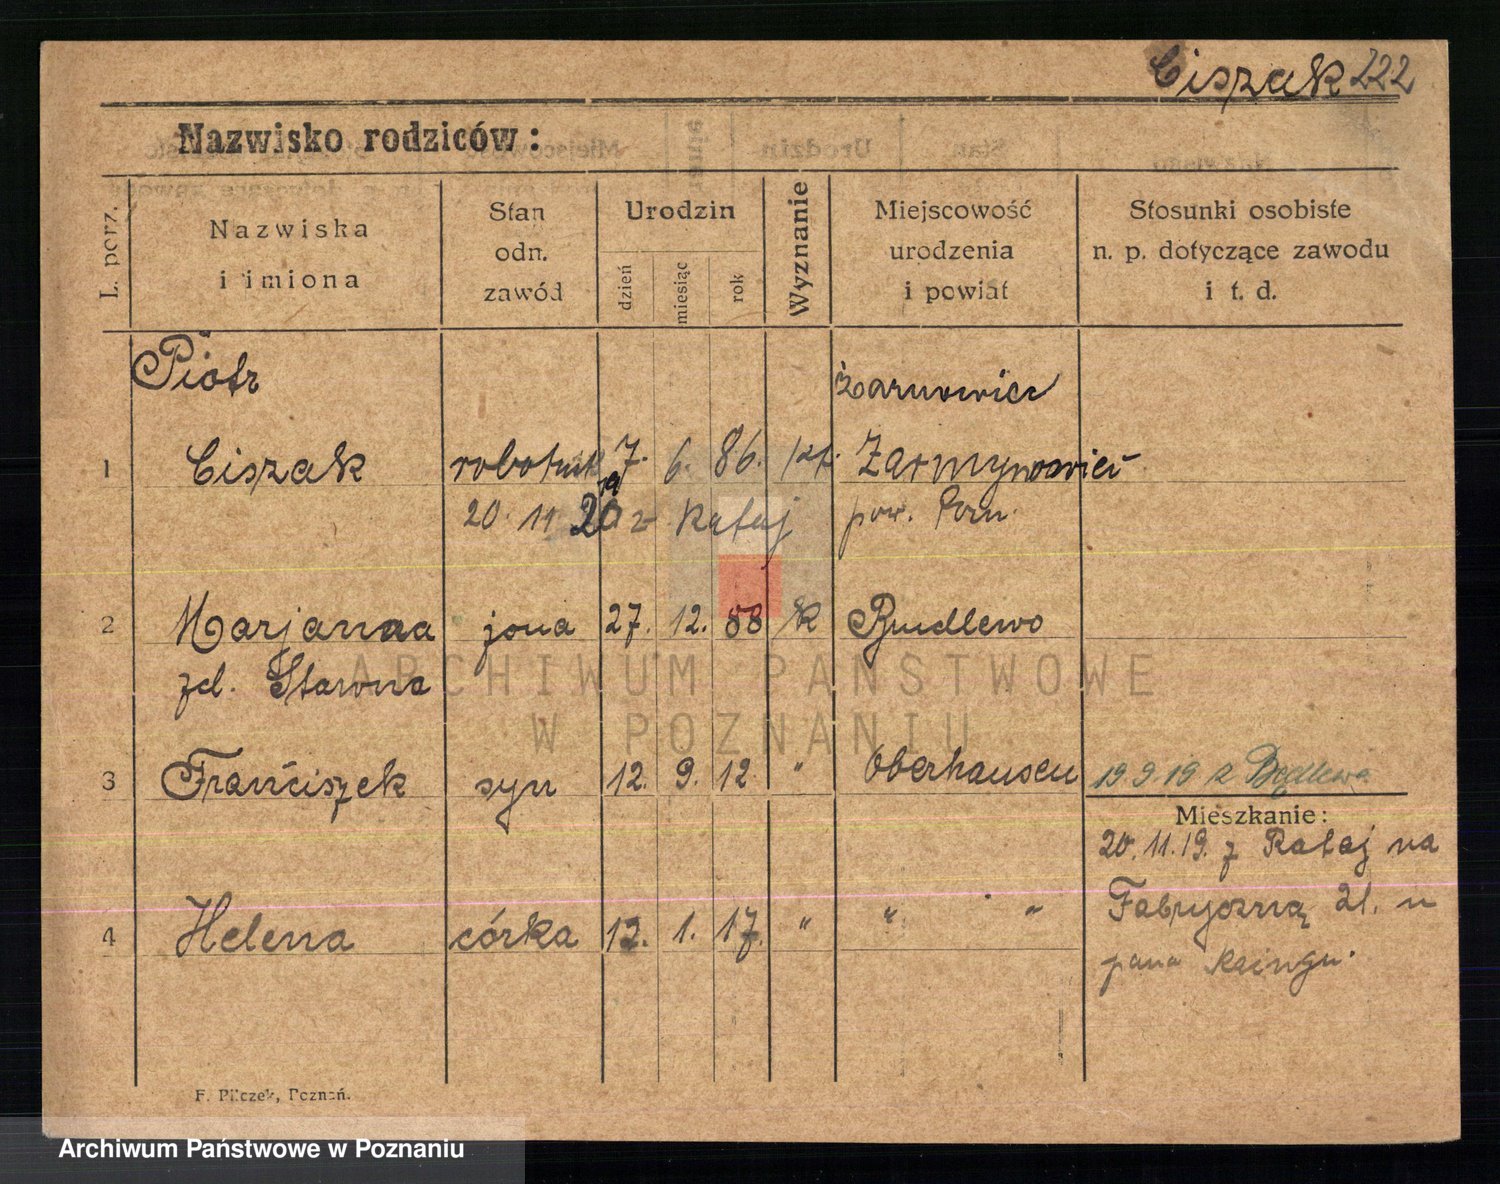 Ciszak 222
Nazwisko rodziców:
L. porz.
Nazwiska
i imiona
Stan
odn.
zawód
Urodzin
dzień
miesiąc
rok
Wyznanie
Miejscowość
urodzenia
i powiat
Stosunki osobiste
n. p. dotyczące zawodu
i t. d.
Piotr
1 Ciszak robotnik 7. 6. 86. kt.
20. 11 z Rataj pow. Pozn.
2 Marjanna żona 27. 12. 88 k
zd. Stawna
3 Franciszek syn 12. 9. 12 " Oberhausen 19 9 19 z Będlewa
Mieszkanie:
20. 11. 19. z Rataj na
Fabryczną 21. u
4 Helena córka 12. 1. 17. " " "
pana
F. Pilczek, Poznań.
ARCHIWUM PAŃSTWOWE
W POZNANIU
Archiwum Państwowe w Poznaniu